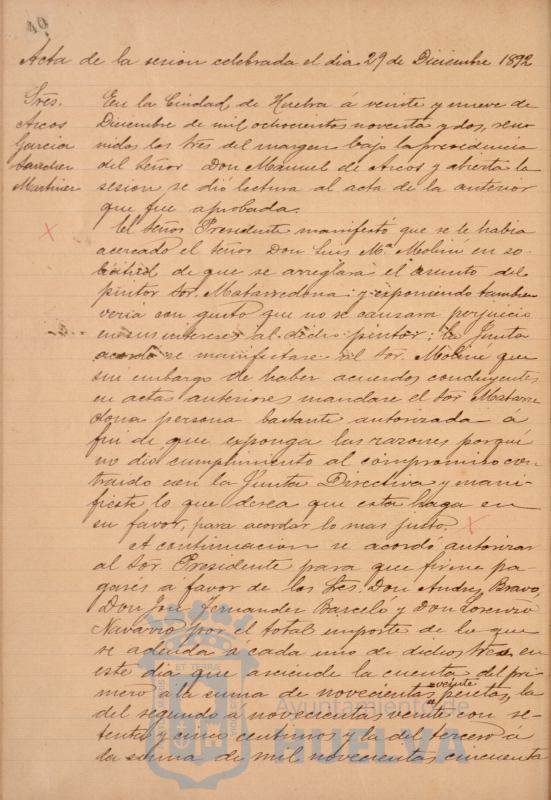 40
Acta de la sesion celebrada el dia 29 de Diciembre 1892
Sres.
Arcos
Garcia
Sanchez
Martinez
En la Ciudad de Huelva á veinte y nueve de
Diciembre de mil ochocientos noventa y dos, reu-
nidos los tres del margen bajo la presidencia
del Señor Don Manuel de Arcos y abierta la
sesion se dió lectura al acta de la anterior
que fue aprobada.
El Señor Presidente manifestó que se le habia
acercado el Señor Don Luis Mª Molini en so-
licitud de que se arreglara el asunto del
pintor Sor. Matarredona y exponiendo tambien
veria con gusto que no se causara perjuicio
en sus intereses al dicho pintor; la Junta
acordó se manifestase al Sor. Molini que
sin embargo de haber acuerdos concluyentes
en actas anteriores mandase el Sor Matarre
dona persona bastante autorizada á
fin de que exponga las razones porqué
no dio cumplimiento al compromiso con-
traido con la Junta Directiva y mani-
fieste lo que desea que esta haga en
su favor, para acordar lo mas justo.
A continuacion se acordó autorizar
al Sor. Presidente para que firme pa-
garés á favor de los Sres. Don Andres Bravo,
Don José Fernandez Barcelo y Don Lorenzo
Navarro por el total importe de lo que
se adeuda á cada uno de dichos Sres en
este dia que asciende la cuenta del pri-
mero á la suma de novecientas veinte pesetas, la
del segundo á novecientas veinte con se-
tenta y cinco centimos y la del tercero á
la suma de mil novecientas cincuenta
Ayuntamiento de
HUELVA